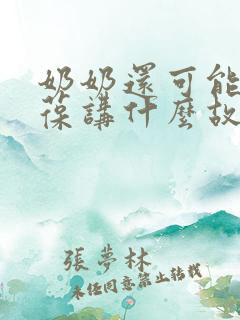 奶奶還可能
葆講什麼故
張夢林
未经同意禁止转载